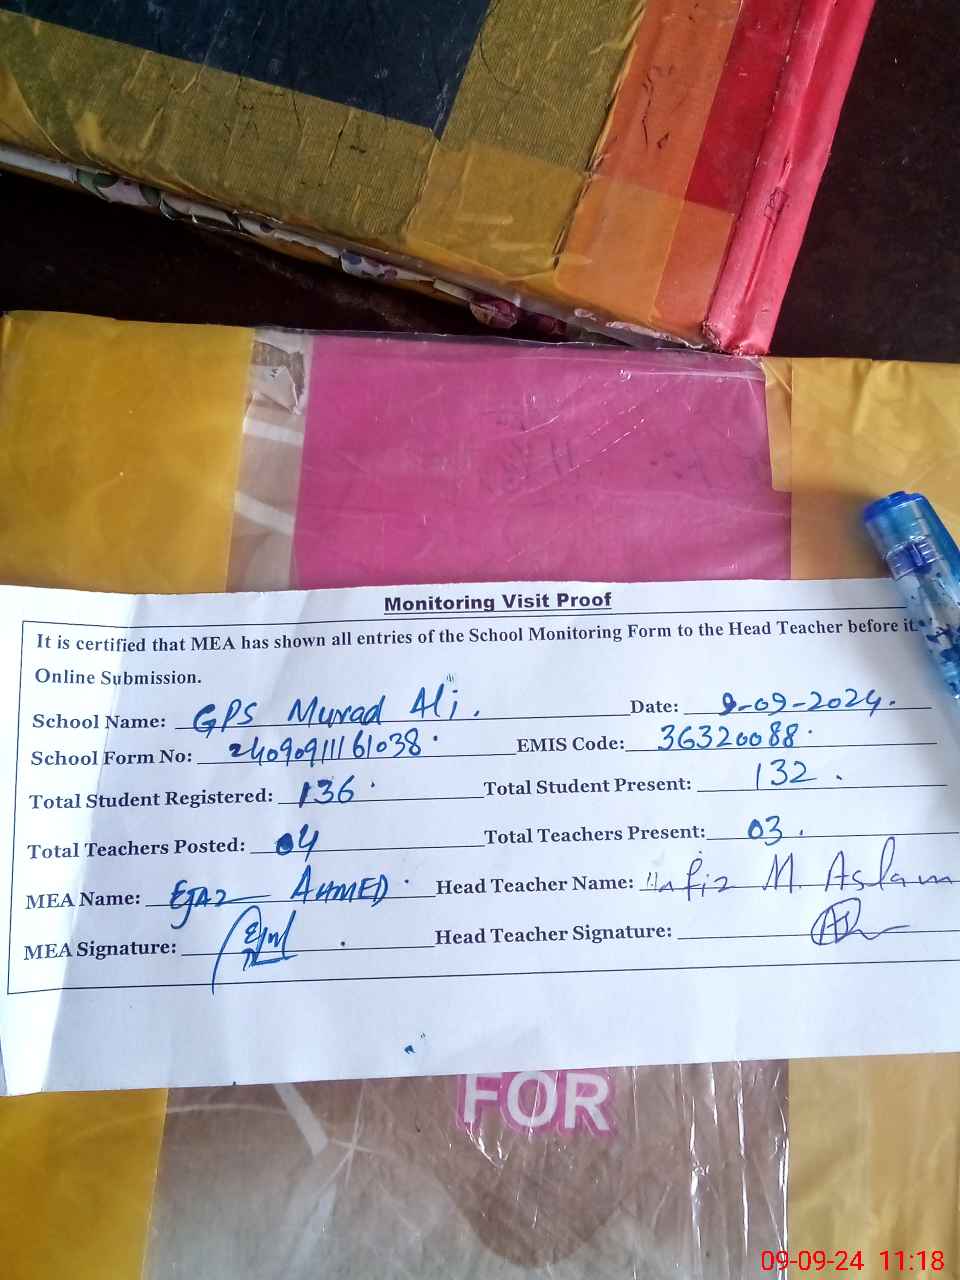 Monitoring Visit Proof
It is certified that MEA has shown all entries of the School Monitoring Form to the Head Teacher before it
Online Submission.
School Name: GPS Murad Ali. Date: 9-09-2024.
School Form No: 2409091116 1038. EMIS Code: 36320088.
Total Student Registered: 136. Total Student Present: 132.
Total Teachers Posted: 04 Total Teachers Present: 03.
MEA Name: EJAZ AHMED. Head Teacher Name: Hafiz M. Aslam
MEA Signature: Head Teacher Signature:
FOR
09-09-24 11:18